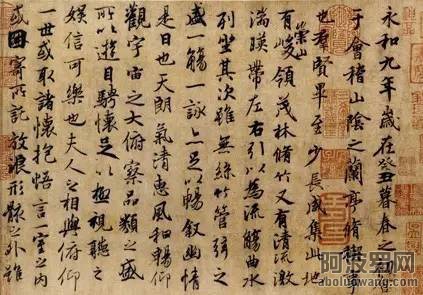 永和九年歲在癸丑暮春之初會
于會稽山陰之蘭亭脩稧事
也羣賢畢至少長咸集此地
有崇山峻領茂林脩竹又有清流激
湍暎帶左右引以為流觴曲水
列坐其次雖無絲竹管弦之
盛一觴一詠亦足以暢敘幽情
是日也天朗氣清惠風和暢仰
觀宇宙之大俯察品類之盛
所以遊目騁懷足以極視聽之
娛信可樂也夫人之相與俯仰
一世或取諸懷抱悟言一室之內
或因寄所託放浪形骸之外雖
阿波罗网
aboluowang.com